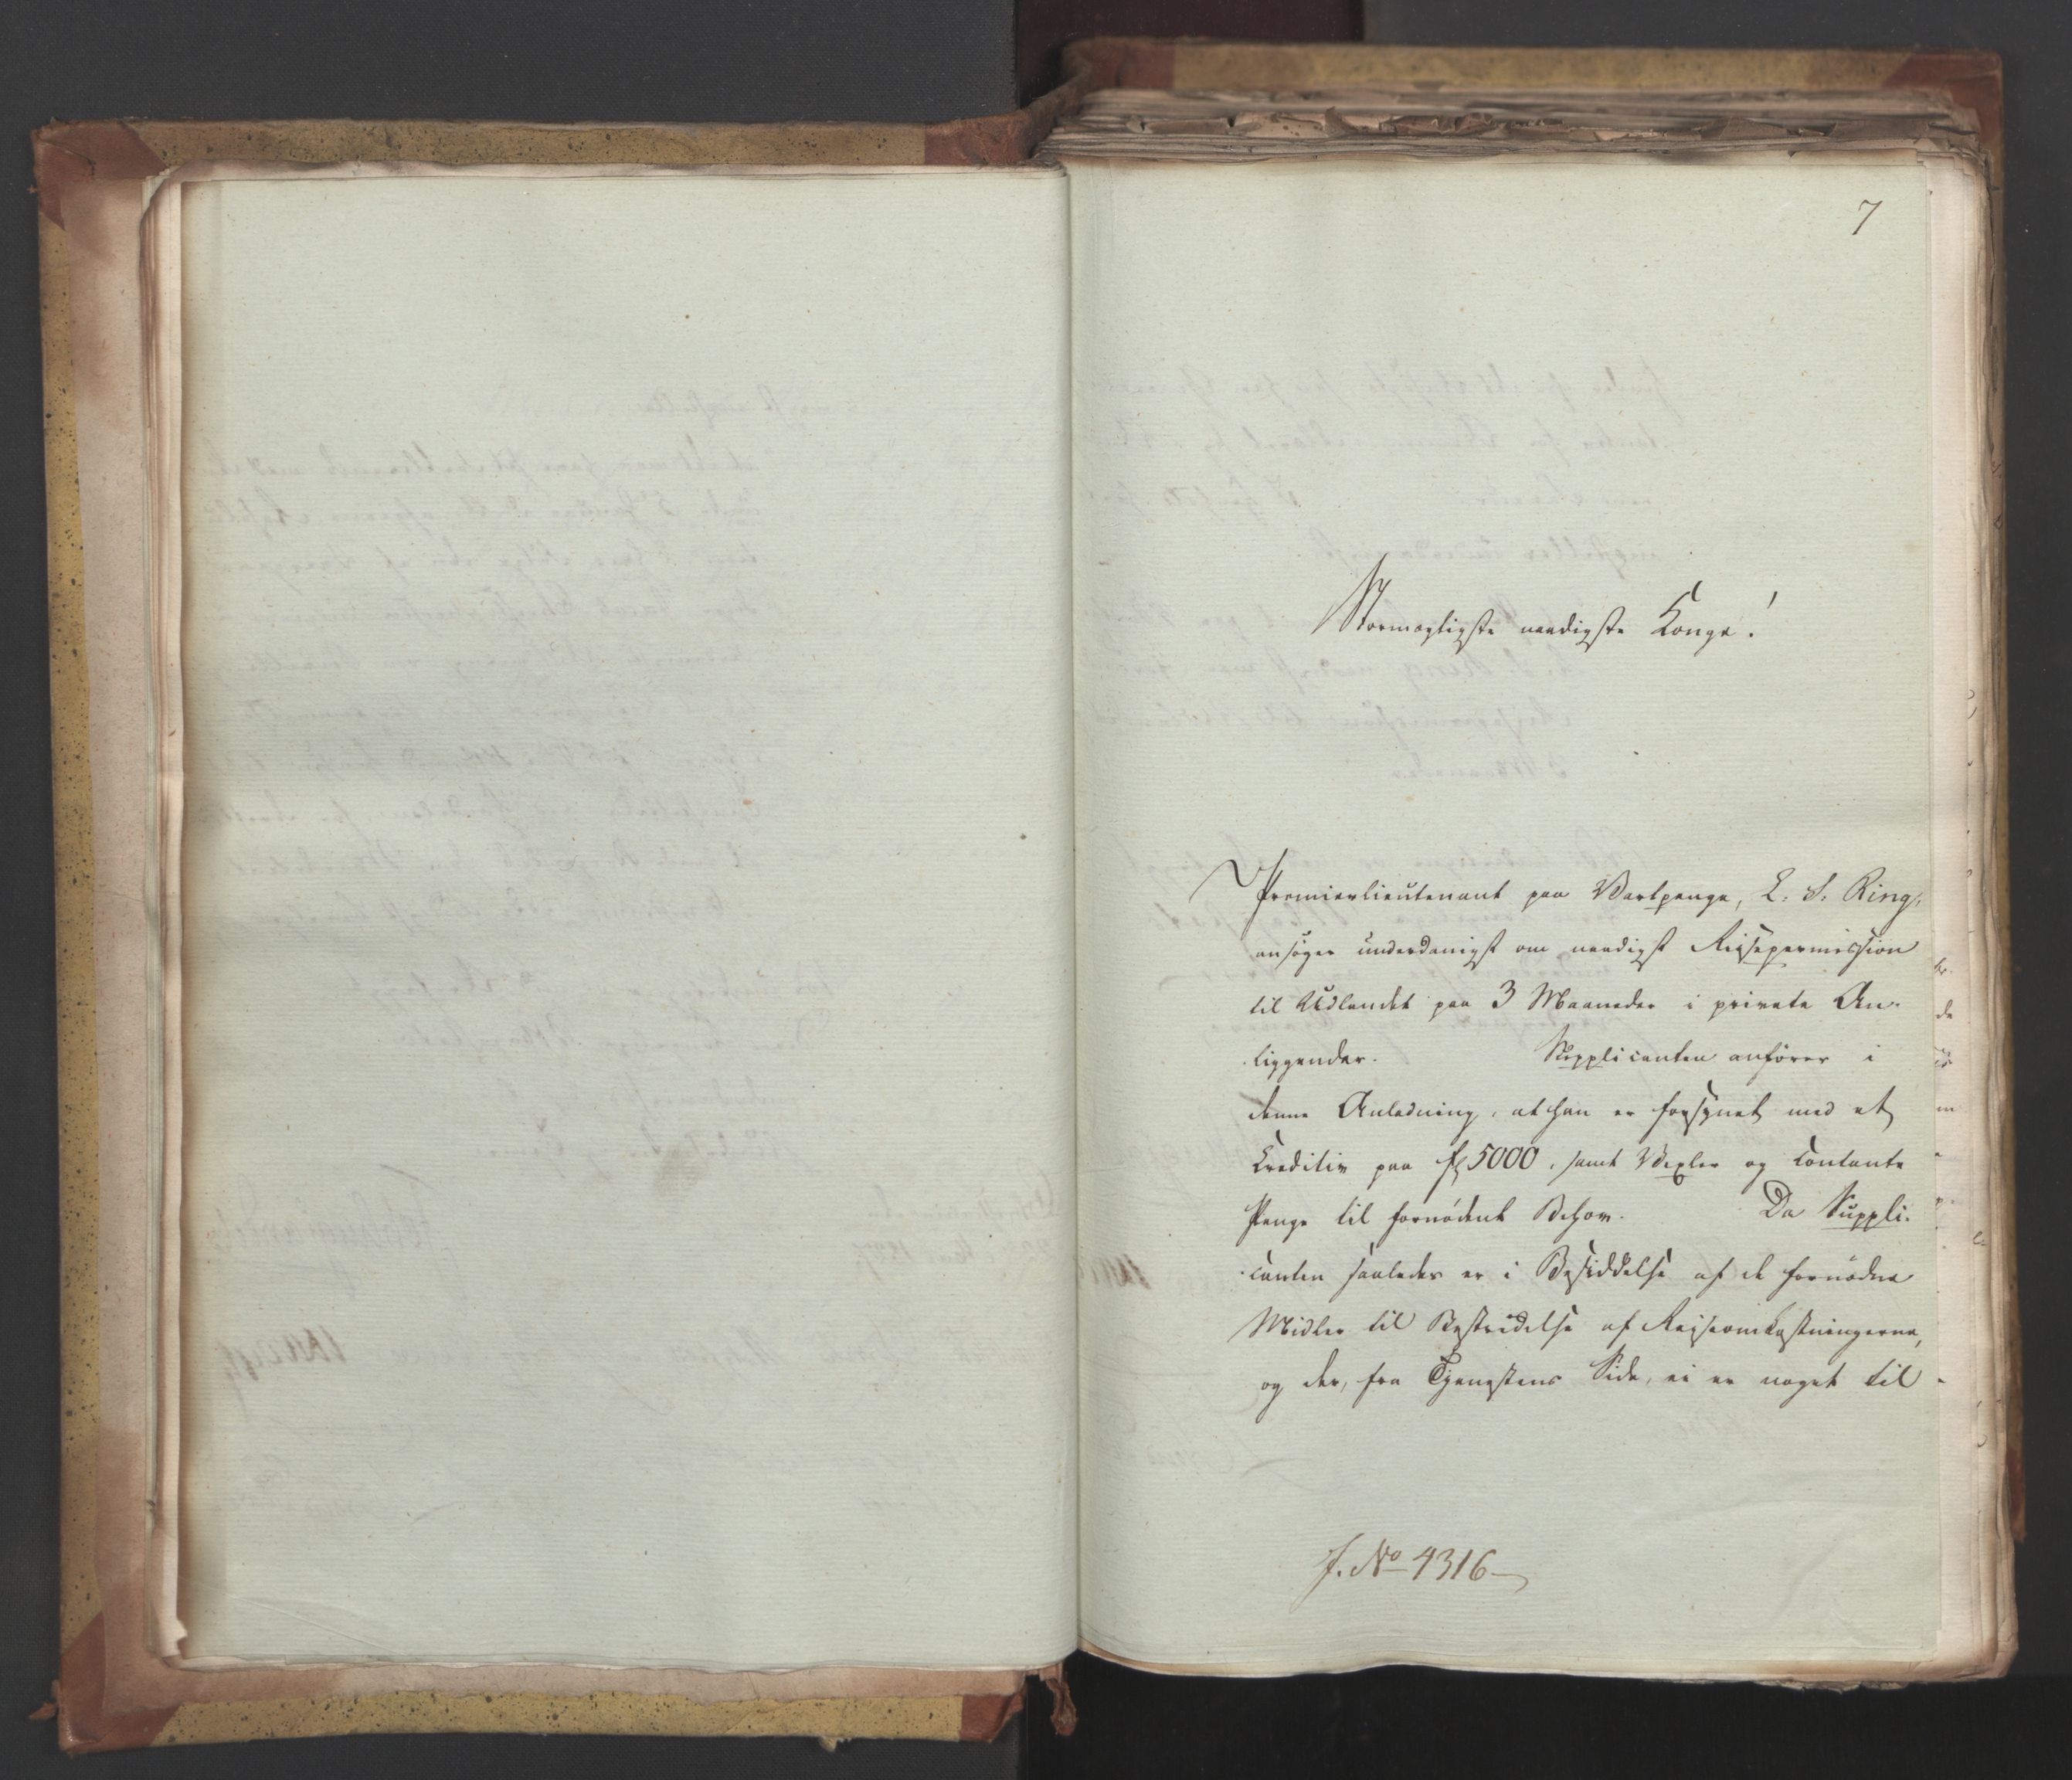 7
Stormægtigste naadigste Konge!
Premierlieutenant paa Vartpenge, L. S. Ring,
ansøger underdanigst om naadigst Reisepermission
til Udlandet paa 3 Maaneder i private An-
liggender. Supplicanten anfører i
denne Anledning, at han er forsynet med et
Creditiv paa f 5000, samt Vexler og Contante
Penge til fornødent Behov. Da Suppli-
canten saaledes er i Besiddelse af de fornødne
Midler til Bestridelse af Reiseomkostningerne,
og der, fra Tjenestens Side, ei er noget til
J. No 4316